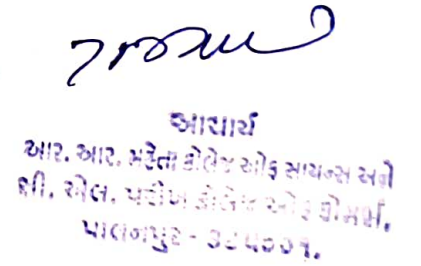 આચાર્ય
આર. આર. મહેતા કોલેજ ઓફ સાયન્સ અને
સી. એલ. પરીખ કોલેજ ઓફ કોમર્સ,
પાલનપુર - ૩૮૫૦૦૧.